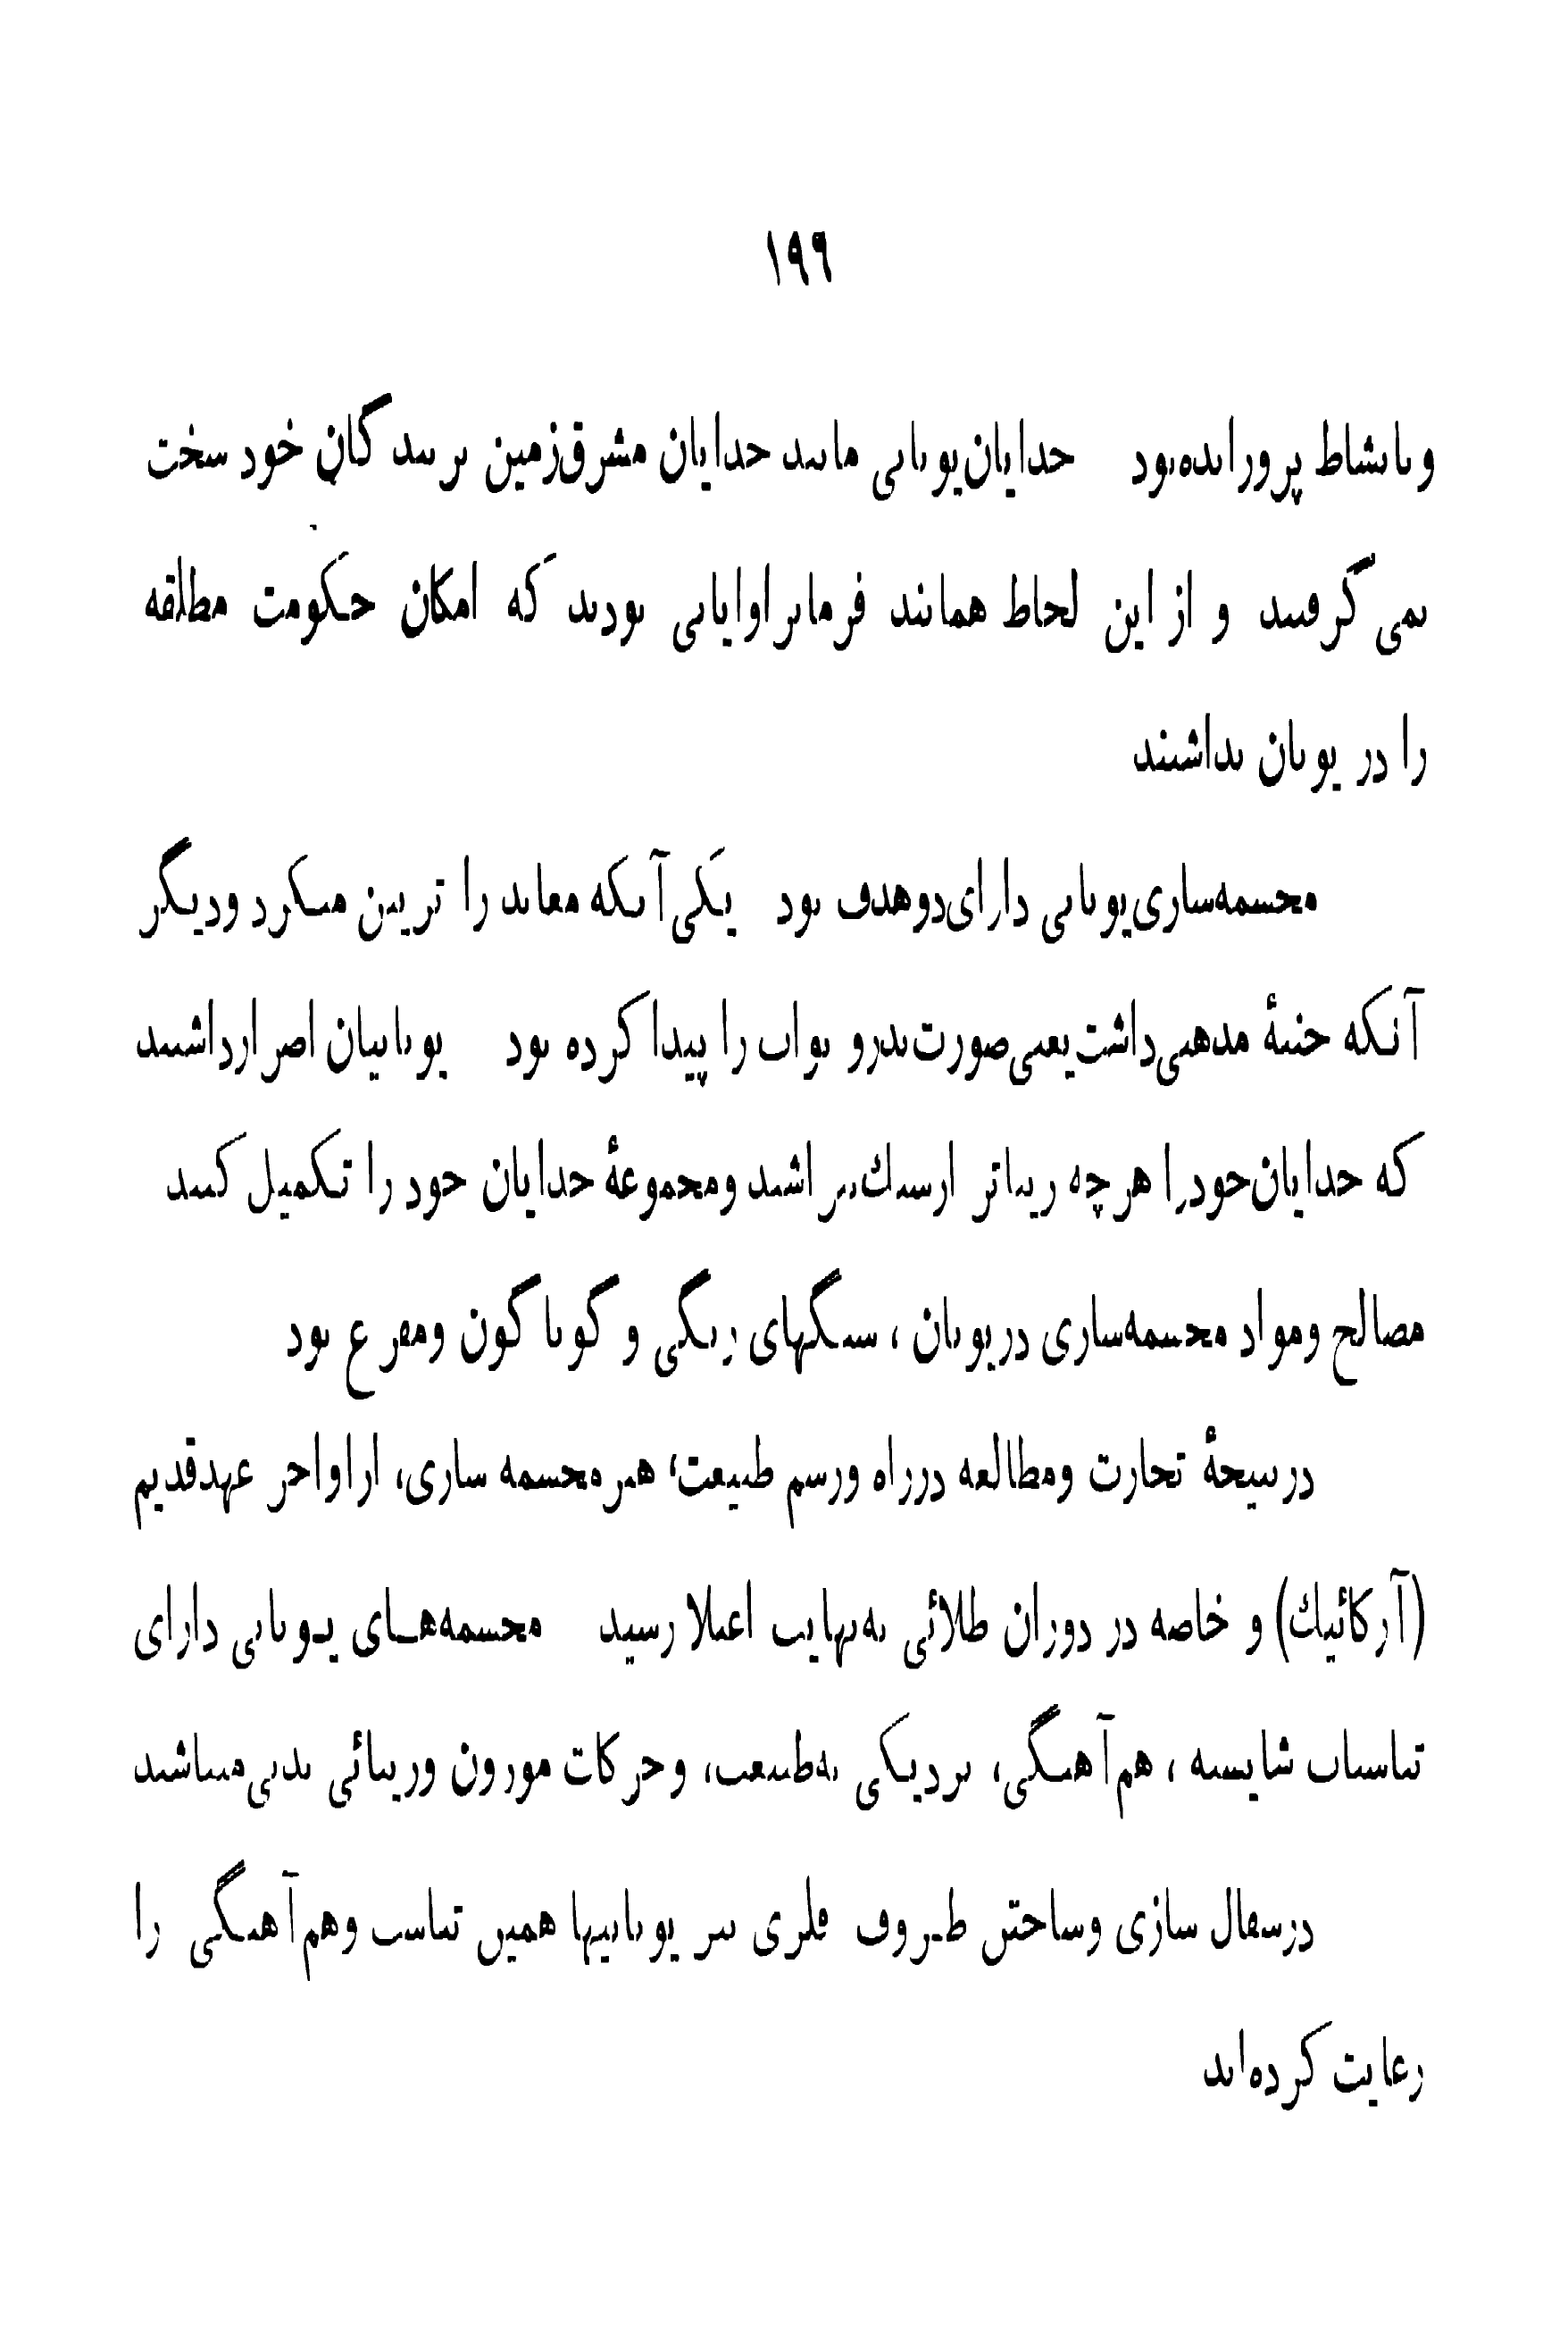 ۱۹۶
و با نشاط پرورانده بود حدایان یونانی مانند حدایان مشرق‌زمین بر بندگان خود سخت
نمی گرفتند و از این لحاظ همانند فرمانروایانی بودند که امکان حکومت مطلقه
را در یونان نداشتند
مجسمه‌سازی یونانی دارای دو هدف بود یکی آنکه معابد را تزیین میکرد و دیگر
آنکه جنبهٔ مذهبی داشت یعنی صورت نذر و ثواب را پیدا کرده بود یونانیان اصرار داشتند
که خدایان خود را هر چه زیباتر از سنگ بتراشند و مجموعهٔ خدایان خود را تکمیل کنند
مصالح و مواد مجسمه‌سازی در یونان ، سنگهای رنگی و گوناگون و مفرغ بود
در نتیجهٔ تجارت و مطالعه در راه و رسم طبیعت، هنر مجسمه سازی، از اواخر عهد قدیم
(آرکائیك) و خاصه در دوران طلائی به نهایت اعتلا رسید مجسمه‌هــای یـونانی دارای
تناسبات شایسته ، هم‌آهنگی، نزدیکی به طبیعت، و حرکات موزون و زیبائی بدنی میباشند
در سفال سازی و ساختن ظـروف فلزی نیز یونانیها همین تناسب و هم‌آهنگی را
رعایت کرده‌اند